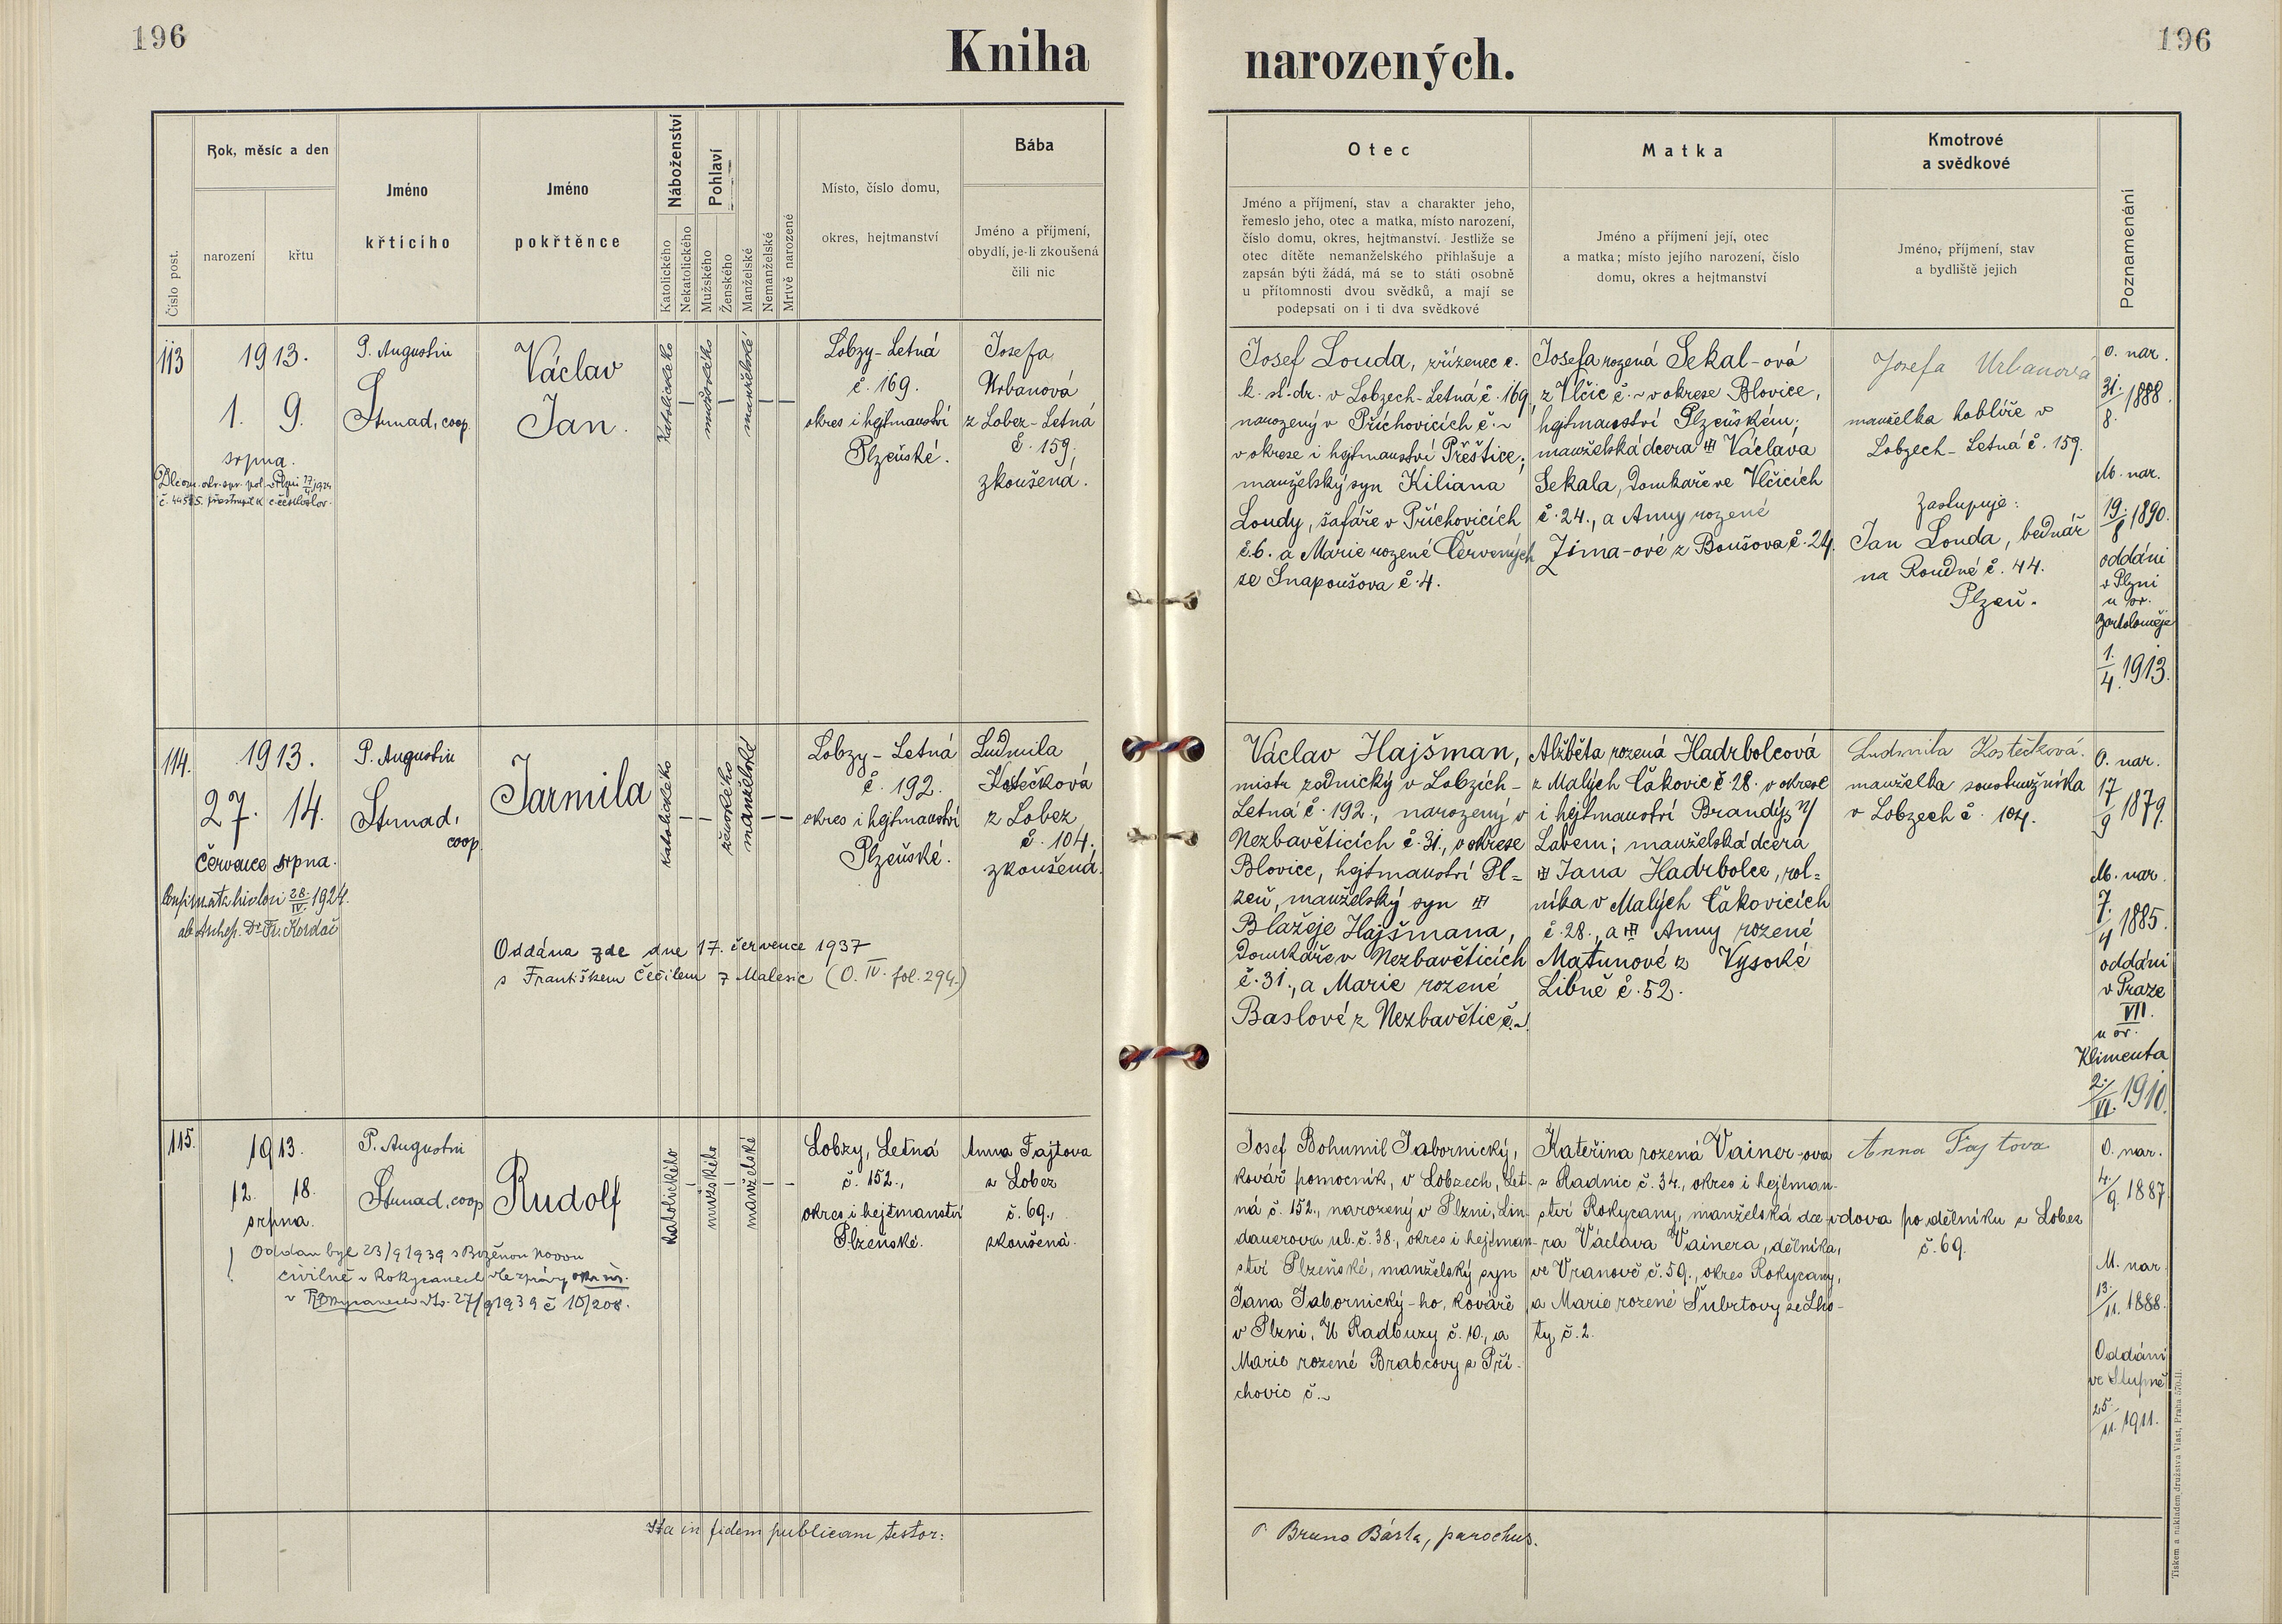 196
Kniha
narozených.
196
Číslo post.
Rok, měsíc a den
narození
křtu
Jméno
křtícího
Jméno
pokřtěnce
Náboženství
Katolického
Nekatolického
Pohlaví
Mužského
Ženského
Manželské
Nemanželské
Mrtvě narozené
Místo, číslo domu,
okres, hejtmanství
Bába
Jméno a příjmení,
obydlí, je-li zkoušená
čili nic
Otec
Jméno a příjmení, stav a charakter jeho,
řemeslo jeho, otec a matka, místo narození,
číslo domu, okres, hejtmanství. Jestliže se
otec dítěte nemanželského přihlašuje a
zapsán býti žádá, má se to státi osobně
u přítomnosti dvou svědků, a mají se
podepsati on i ti dva svědkové
Matka
Jméno a příjmení její, otec
a matka; místo jejího narození, číslo
domu, okres a hejtmanství
Kmotrové
a svědkové
Jméno, příjmení, stav
a bydliště jejich
Poznamenání
113
1913.
1. 9.
srpna.
P. Augustin
Strnad, coop.
Václav
Jan.
katolického
mužského
manželské
Lobzy-Letná
č. 169.
okres i hejtmanství
Plzeňské.
Josefa
Urbanová
z Lobez-Letná
č. 159,
zkoušená.
Josef Louda, zřízenec c.
k. st. dr. v Lobzech-Letná č. 169,
narozený v Příchovicích č. ~
v okrese i hejtmanství Přeštice;
manželský syn Kiliana
Loudy, šafáře v Příchovicích
č. 6. a Marie rozené Červených
ze Snapoušova č. 4.
Josefa rozená Sekal-ová
z Vlčic č. ~ v okrese Blovice,
hejtmanství Plzeňském;
manželská dcera Václava
Sekala, domkáře ve Vlčicích
č. 24., a Anny rozené
Zima-ové z Boušova č. 24.
Josefa Urbanová
manželka hoblíře v
Lobzech-Letná č. 159.
Zastupuje:
Jan Louda, bednář
na Roudné č. 44.
Plzeň.
O. nar.
31./8. 1888.
M. nar.
19./8 1890.
oddáni
v Plzni
u sv.
Bartoloměje
1./4. 1913.
114.
1913.
27. 14.
července srpna.
Confirmata hic loci 28./IV. 1924.
ab Archep. Dr Fr. Kordač
P. Augustin
Strnad,
coop.
Jarmila
katolického
ženského
manželské
Lobzy-Letná
č. 192.
okres i hejtmanství
Plzeňské.
Ludmila
Kostečková
z Lobez
č. 104.
zkoušená.
Oddána zde dne 17. července 1937
s Františkem Čečilem z Malesic (O. IV. fol. 294.)
Václav Hajšman,
mistr zednický v Lobzích-
Letná č. 192., narozený v
Nezbavěticích č. 31., v okrese
Blovice, hejtmanství Pl=
zeň, manželský syn
Blažeje Hajšmana,
domkáře v Nezbavěticích
č. 31., a Marie rozené
Baslové z Nezbavětic č. ~
Alžběta rozená Hadrbolcová
z Malých Čakovic č. 28. v okrese
i hejtmanství Brandýs n/
Labem; manželská dcera
Jana Hadrbolce, rol=
níka v Malých Čakovicích
č. 28., a Anny rozené
Matunové z Vysoké
Libně č. 52.
Ludmila Kostečková.
manželka soustružníka
v Lobzech č. 104.
O. nar.
17/9 1879.
M. nar.
7./4 1885.
oddáni
v Praze
VII.
u sv.
Klimenta
2./VII. 1910.
115.
1913.
12. 18.
srpna.
Oddán byl 23/9 1939 s Boženou
civilně v Rokycanech dle zprávy okr. úř.
v Rokycanech ze 27/9 1939 č 10/208.
P. Augustin
Strnad, coop
Rudolf
katolického
mužského
manželské
Lobzy, Letná
č. 152.,
okres i hejtmanství
Plzeňské.
Anna Fajtova
z Lobez
č. 69.,
zkoušená.
Josef Bohumil Jabornický,
kovář pomocník, v Lobzech, Let-
ná č. 152., narozený v Plzni, Lin-
dauerova ul. č. 38., okres i hejtman-
ství Plzeňské, manželský syn
Jana Jabornický-ho, kováře
v Plzni, U Radbuzy č. 10., a
Marie rozené Brabcovy z Pří-
chovic č. ~
Kateřina rozená Vainer-ova
z Radnic č. 34., okres i hejtman-
ství Rokycany, manželská dce
ra Václava Vainera, dělníka,
ve Vranově č. 59., okres Rokycany,
a Marie rozené Šubrtovy ze Lho-
ty č. 2.
Anna Fajtova
vdova po dělníku z Lobez
č. 69.
O. nar.
4./9. 1887.
M. nar.
13./11. 1888.
Oddáni
ve Stupně
25./11. 1911.
Ita in fidem publicam testor:
P. Bruno Bárta, parochus.
Tiskem a nákladem družstva Vlast, Praha 570-II.